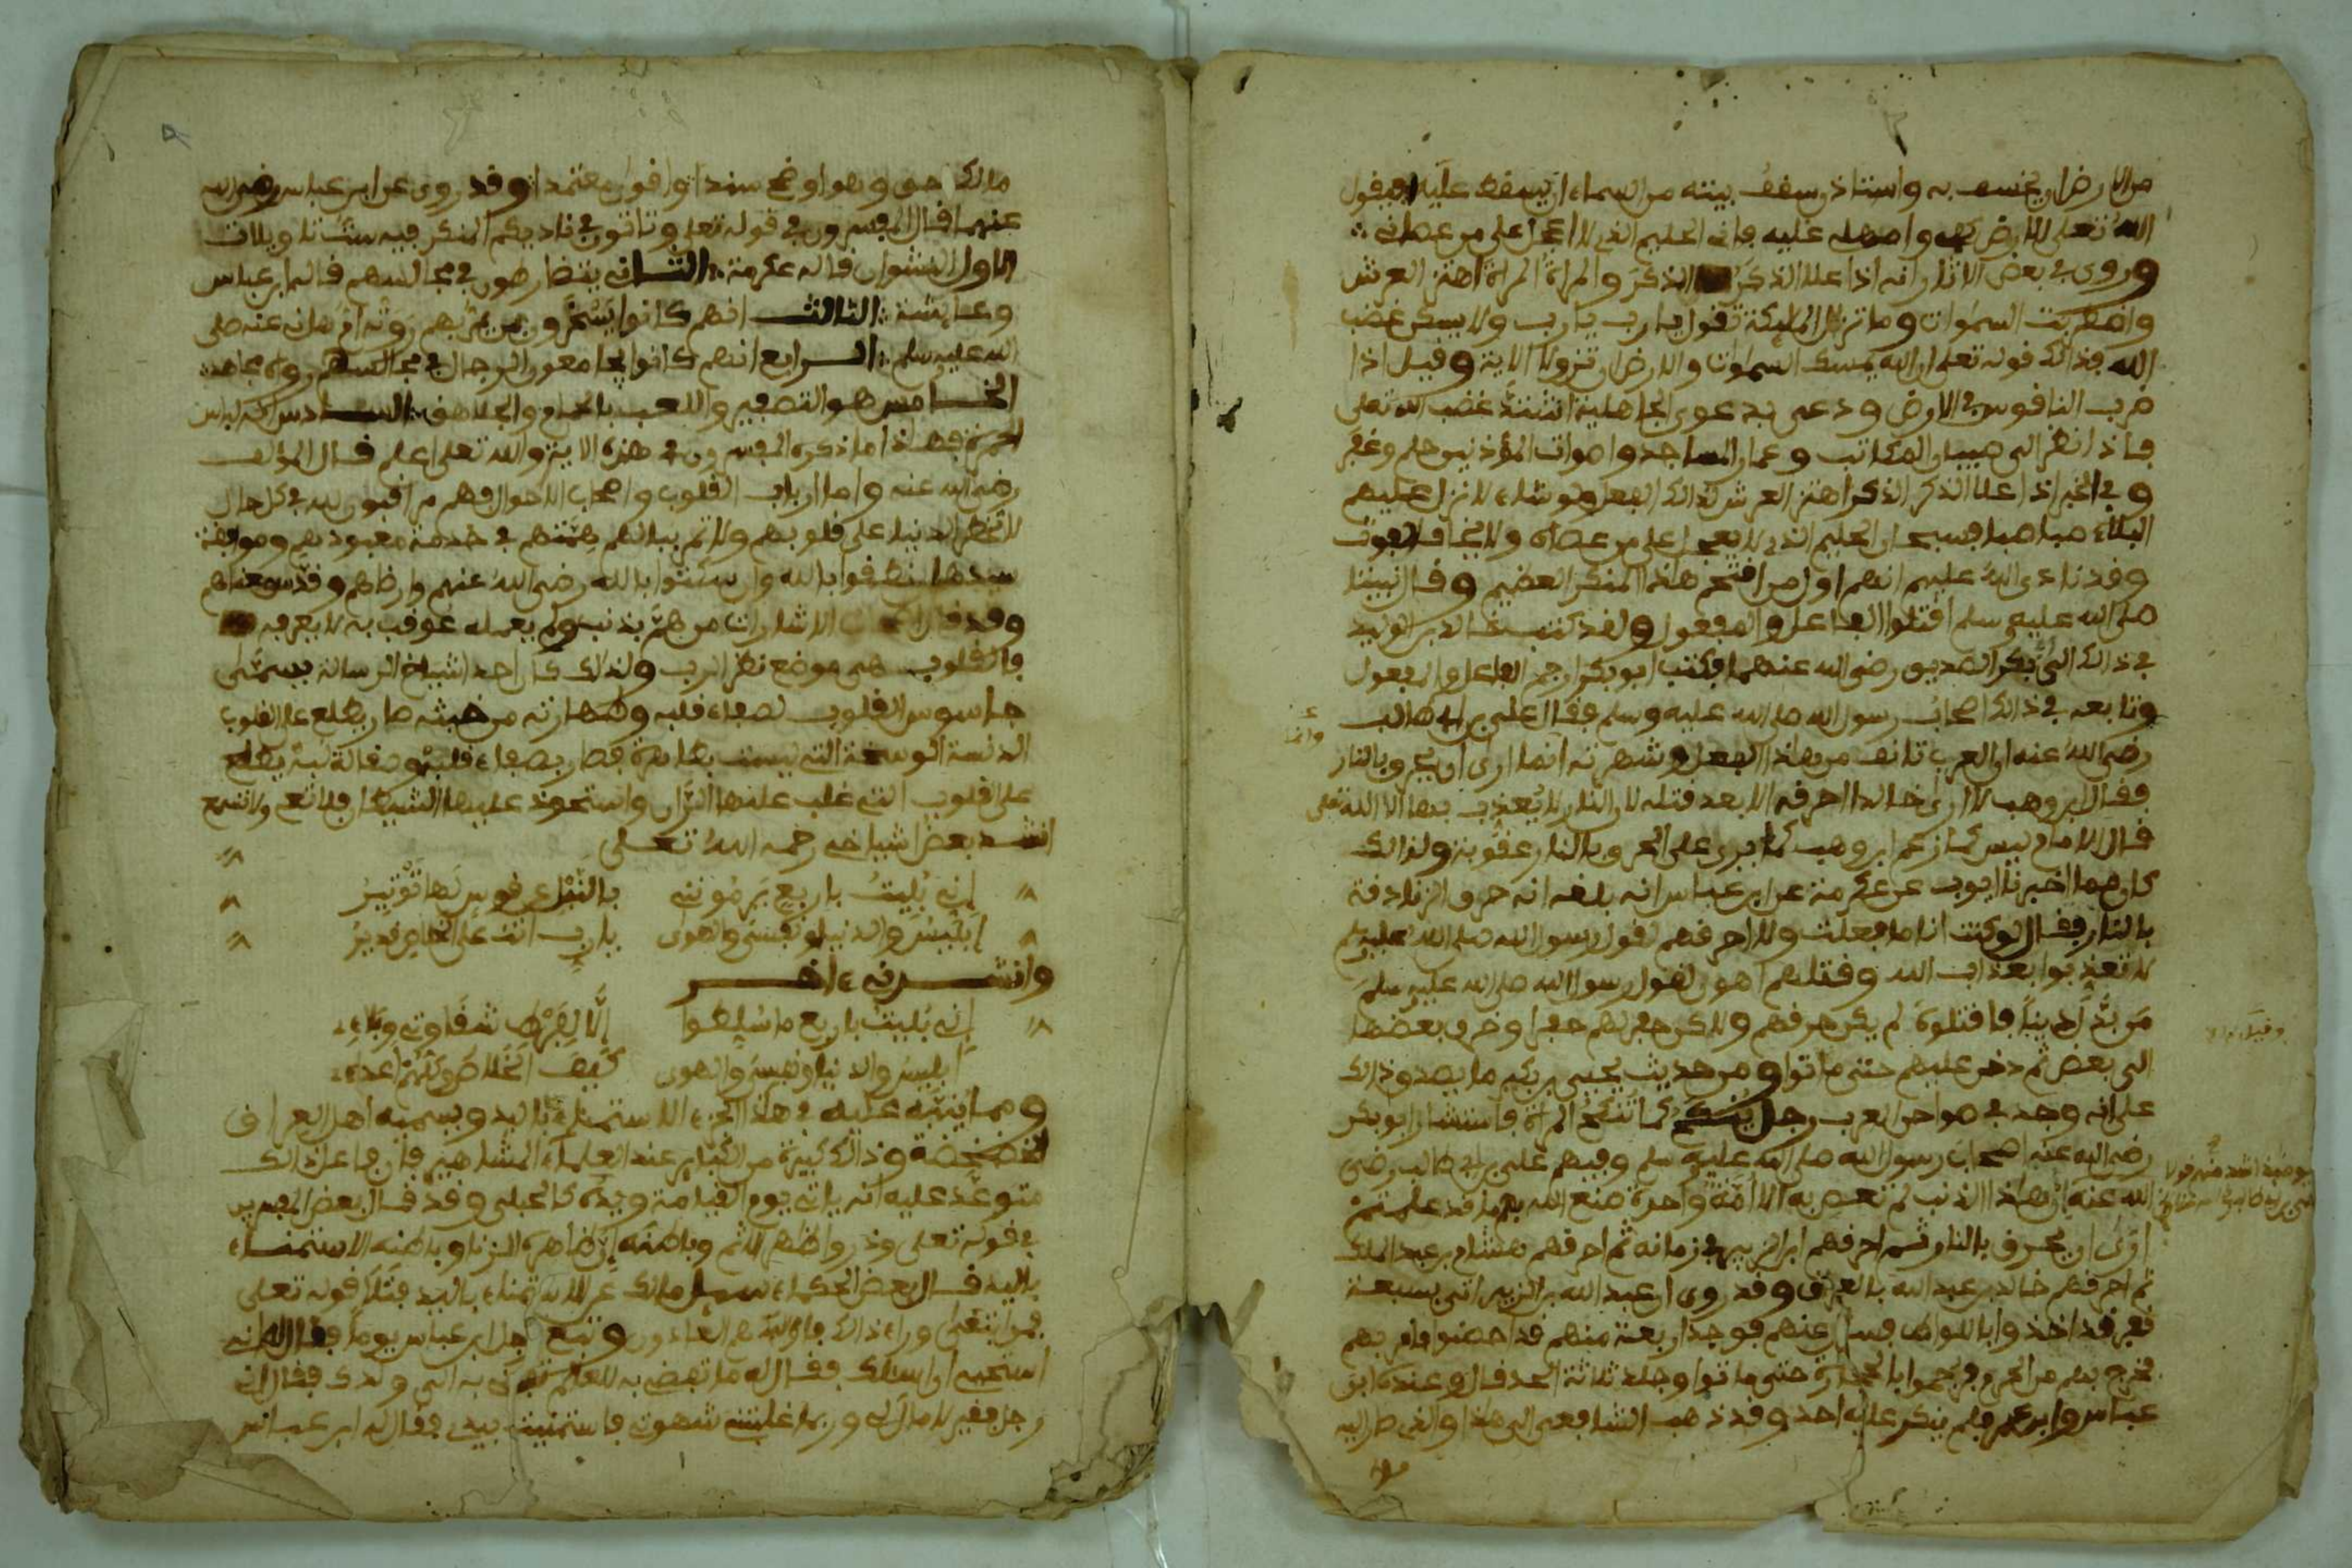 من الارض ان يخسف به واستاذن سقف بيته من السماء ان يسقط عليه فيقول
الله تعلى للارض كفى وامهلى عليه فانى الحليم الذى لا اعجل على من عصانى
وروى في بعض الاثار انه اذا علا الذكر الذكر والمراة المراة اهتز العرش
واضطربت السموات وما تزال الملئكة تقول يارب يارب ولا يسكن غضب
الله فذالك قوله تعلى ان الله يمسك السموات والارض ان تزولا الاية وقيل اذا
ضرب الناقوس في الارض ودعى بدعوى الجاهلية اشتد غضب الله تعلى
فاذا نظر الى صبيان المكاتب وعمار المساجد واصوات المؤذنين حلم وغفر
وفي الخبر اذا علا الذكر الذكر اهتز العرش لذالك الفعل ولو شاء لانزل عليهم
البلاء صبا صبا فسبحان الحليم الذى لا يعجل على من عصاه ولا يخاف الفوت
وقد نادى الله عليهم انهم اول من افتتح هذا المنكر العضيم وقال نبينا
صلى الله عليه وسلم اقتلوا الفاعل والمفعول ولقد كتب خالد بن الوليد
في ذالك الى ابى بكر الصديق رضى الله عنهما فكتب ابو بكر ارجم الفاعل والمفعول
وتابعه في ذالك اصحاب رسول الله صلى الله عليه وسلم فقال على بن ابى طالب
رضى الله عنه ان العرب تانف من هذا الفعل وشهرته انما ارى ان يحرق بالنار
فقال ابن وهب لا ارى خالدا احرقه الا بعد قتله لان النار لا يعذب بها الا الله تعلى
قال الامام ليس كما زعم ابن وهب كما يرى على الحرق بالنار عقوبة ولذالك
عن عكرمة عن ابن عباس انه بلغه انه حرق الزنادقة
بالنار فقال لو كنت انا ما فعلت ولا احرقهم لقول رسول الله صلى الله عليه وسلم
لا تعذبوا بعذاب الله وقتلهم اهون لقول رسول الله صلى الله عليه وسلم
من بدل دينا فاقتلوه لم يكن حرقهم ولاكن حفر لهم حفرا وخرق بعضها
الى بعض ثم دخن عليهم حتى ماتوا ومن حديث يحيى بن بكير ما يصد وذالك
على انه وجد في ضواحى العرب رجل ينكح كما تنكح المراة فاستشار ابو بكر
رضى الله عنه اصحاب رسول الله صلى الله عليه وسلم وفيهم على بن ابى طالب رضى
الله عنه ان هذا الذنب لم تعص به الا امة واحدة صنع الله بها ما قد علمتم
ارى ان يحرق بالنار ثم احرقهم ابن الزبير في زمانه ثم احرقهم هشام بن عبد الملك
ثم احرقهم خالد بن عبد الله بالعراق وقد روى ان عبد الله بن الزبير اتى بسبعة
نفر قد اخذوا باللواط فسال عنهم فوجد اربعة منهم قد احصنوا فامر بهم
فخرج بهم من الحرم فرجموا بالحجارة حتى ماتوا وجلد ثلاثة الحد قال وعنده ابن
عباس وابن عمر فلم ينكر عليه احد وقد ذهب الشافعى الى هذا والذى صار اليه
وانما
مالك احق وهو اوضح سندا واقوى معتمدا وقد روى عن ابن عباس رضى الله
عنهما قال المفسرون في قوله تعلى وتاتون في ناديكم المنكر فيه ست تاويلات
الاول النشوان قاله عكرمة الثانى يتضارطون في مجالسهم قاله ابن عباس
وعائشة الثالث انهم كانوا يسخرون بمن يمر بهم روته ام هانئ عنه صلى
الله عليه وسلم الرابع انهم كانوا يجامعون الرجال في مجالسهم رواه مجاهد
الخامس هو التصفير واللعب بالحمام والجلاهق السادس انه لباس
الحمرة فهذا ما ذكره المفسرون في هذه الاية والله تعلى اعلم قال المؤلف
رضى الله عنه واما ارباب القلوب واصحاب الاحوال فهم مراقبون لله في كل حال
لا تخطر الدنيا على قلوبهم ولا تمر ببالهم همتهم في خدمة معبودهم وموافقة
سيدهم نطقوا بالله وانسكتوا بالله رضى الله عنهم وارضاهم
وقد قال اصحاب الاشارات من هم بذنب ولم يعمله عوقب به لا يعرفه
فالقلوب هى موضع نظر الرب ولذالك كان احد اشياخ الرسالة يسمى
جاسوس القلوب لصفاء قلبه وطهارته من خبثه صار يطلع على القلوب
الدنسة الوسخة التى ليست بطاهرة فصار بصفاء قلبه وصقالة لبه يطلع
على القلوب التى غلب عليها الران واستحوذ عليها الشيطان فلا تعى ولا تسمع
انشد بعض اشياخى رحمه الله تعلى
انى بليت باربع يرموننى بالنبل عن قوس لها توتير
ابليس والدنيا ونفسى والهوى يارب انت على الخلاص قدير
وانشدنى ءاخر
انى بليت باربع ما سلطوا الا لفرط شقاوتى وبلاءى
ابليس والدنيا ونفسى والهوى كيف الخلاص وكلهم اعداءى
ومما ينبه عليه في هذا الجزء الاستمناء باليد ويسميه اهل العراق
الخضخضة وذالك كبيرة من الكبائر عند العلماء المشاهير فان فاعل ذالك
متوعد عليه انه ياتى يوم القيامة ويده كالحبلى وقد قال بعض المفسرين
في قوله تعلى وذروا ظاهر الاثم وباطنه ان ظاهره الزنا وباطنه الاستمناء
باليد قال بعض الحكماء سئل مالك عن الاستمناء باليد فتلا قوله تعلى
فمن ابتغى وراء ذالك فاولئك هم العادون وتبع رجل ابن عباس يوما فقال له انى
استحيى ان اسالك فقال له ما تفضى به للعالم تفضى به الى والدك فقال انى
رجل فقير لا مال لى وربما غلبتنى شهوتى فاستمنيت بيدى فقال له ابن عباس